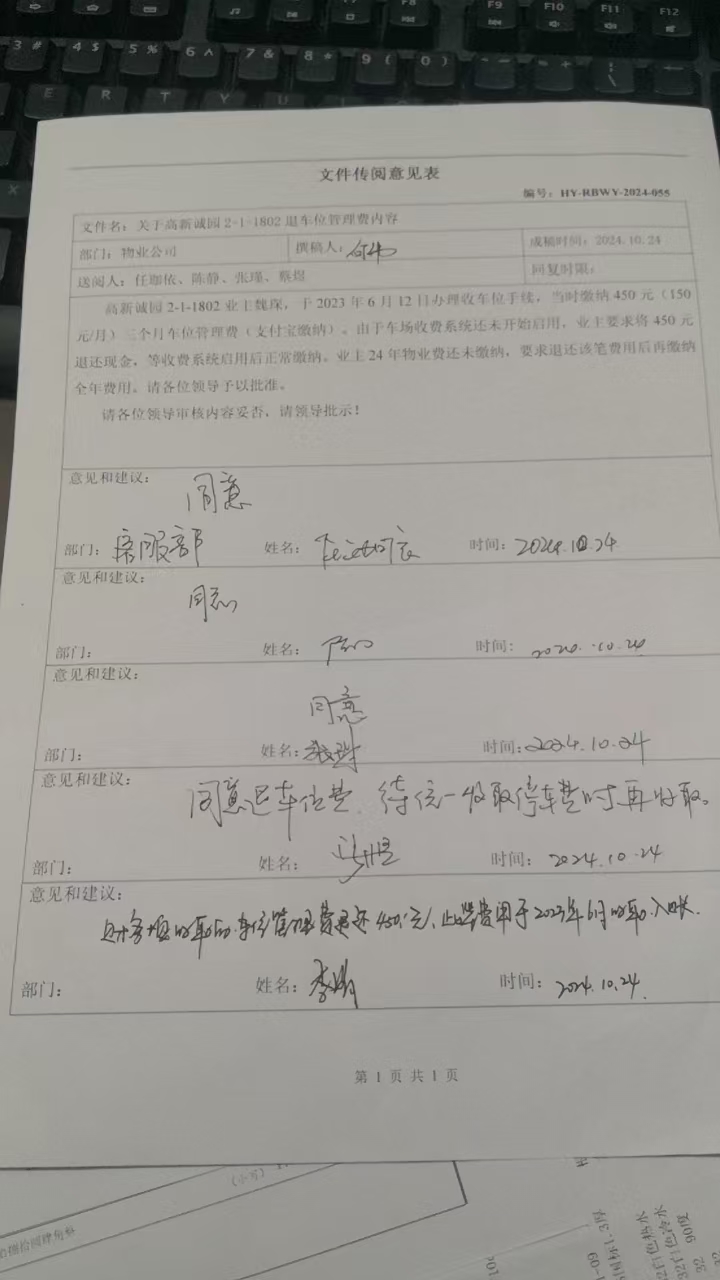 F9 F10 F11 F12
3 # 4 $ 5 % 6 ^ 7 & 8 * 9 ( 0 )
E R T Y U
X
文件传阅意见表
编号：HY-RBWY-2024-055
文件名：关于高新诚园 2-1-1802 退车位管理费内容
部门：物业公司 撰稿人： 成稿时间：2024.10.24
送阅人：任珈依、陈静、张瑾、蔡煜 回复时限：
高新诚园 2-1-1802 业主魏琛，于 2023 年 6 月 12 日办理收车位手续，当时缴纳 450 元（150
元/月）三个月车位管理费（支付宝缴纳）。由于车场收费系统还未开始启用，业主要求将 450 元
退还现金，等收费系统启用后正常缴纳。业主 24 年物业费还未缴纳，要求退还该笔费用后再缴纳
全年费用。请各位领导予以批准。
请各位领导审核内容妥否，请领导批示！
意见和建议：
同意
部门：客服部 姓名： 时间：2024.10.24
意见和建议：
同意
部门： 姓名： 时间：2024.10.24
意见和建议：
同意
部门： 姓名： 时间：2024.10.24
意见和建议：
同意退车位费，待统一收取停车费时再收取。
部门： 姓名： 时间：2024.10.24
意见和建议：
车位管理费退还450元，此笔费用于2023年6月 入账.
部门： 姓名：李娟 时间：2024.10.24
第 1 页 共 1 页
（小写）